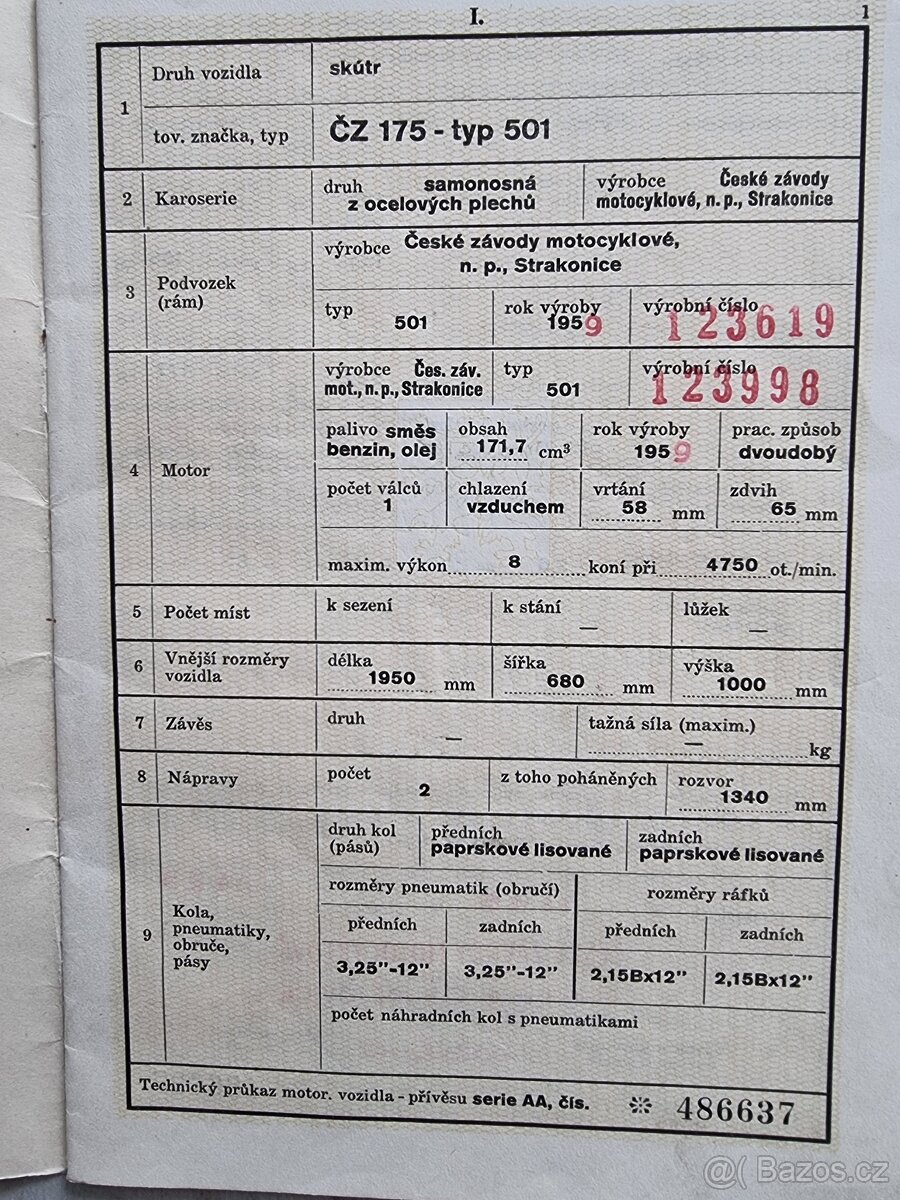 I.
1
1
Druh vozidla
skútr
tov. značka, typ
ČZ 175 - typ 501
2
Karoserie
druh samonosná
z ocelových plechů
výrobce České závody
motocyklové, n. p., Strakonice
3
Podvozek
(rám)
výrobce České závody motocyklové,
n. p., Strakonice
typ
501
rok výroby
1959
výrobní číslo
123619
4
Motor
výrobce Čes. záv.
mot., n. p., Strakonice
typ
501
výrobní číslo
123998
palivo směs
benzin, olej
obsah
171,7 cm³
rok výroby
1959
prac. způsob
dvoudobý
počet válců
1
chlazení
vzduchem
vrtání
58 mm
zdvih
65 mm
maxim. výkon 8 koní při 4750 ot./min.
5
Počet míst
k sezení
k stání
—
lůžek
—
6
Vnější rozměry
vozidla
délka
1950 mm
šířka
680 mm
výška
1000 mm
7
Závěs
druh
—
tažná síla (maxim.)
— kg
8
Nápravy
počet
2
z toho poháněných
rozvor
1340 mm
9
Kola,
pneumatiky,
obruče,
pásy
druh kol
(pásů)
předních
paprskové lisované
zadních
paprskové lisované
rozměry pneumatik (obručí)
rozměry ráfků
předních
zadních
předních
zadních
3,25"-12"
3,25"-12"
2,15Bx12"
2,15Bx12"
počet náhradních kol s pneumatikami
Technický průkaz motor. vozidla - přívěsu serie AA, čís. ※ 486637
@( Bazos.cz